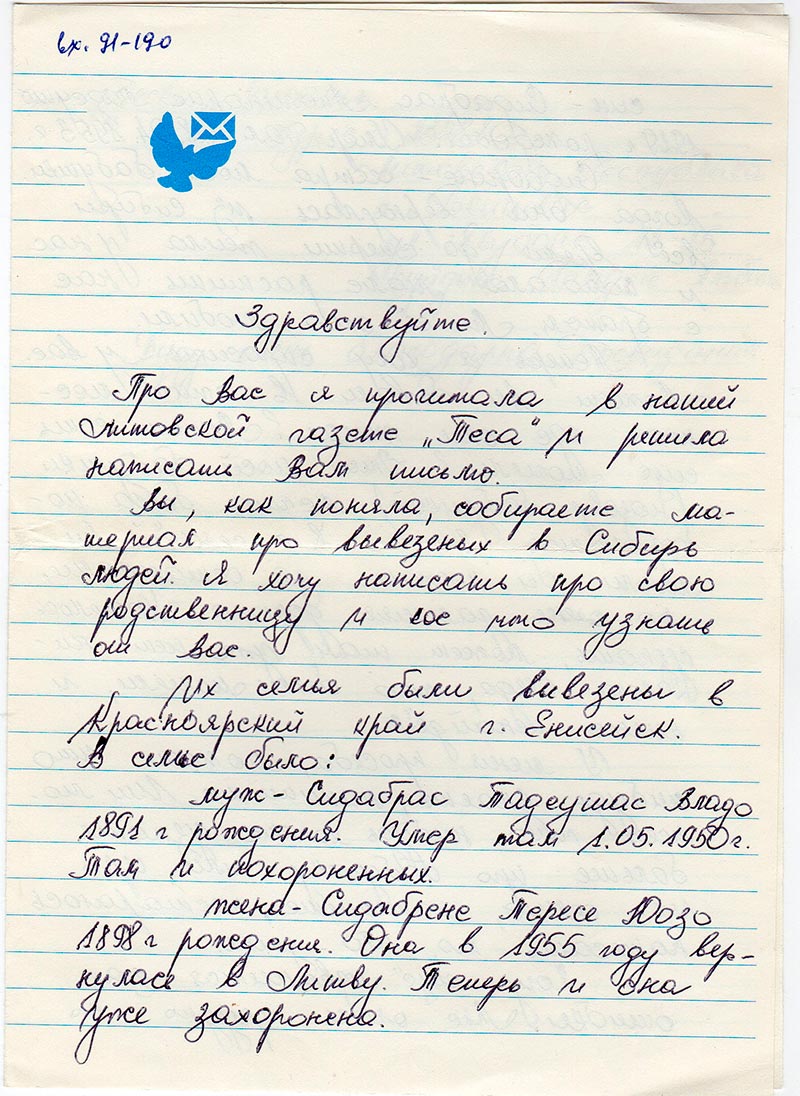 вх. 91-190
Здравствуйте.
Про вас я прочитала в нашей
литовской газете „Теса“ и решила
написать Вам письмо.
Вы, как поняла, собираете ма-
териал про вывезеных в Сибирь
людей. Я хочу написать про свою
родственницу и кое что узнать
от вас.
Их семья были вывезены в
Красноярский край г. Енисейск.
В семье было:
муж- Сидабрас Тадеушас Владо
1891 г рождения. Умер там 1.05.1950г.
Там и похороненных.
жена- Сидабрене Тересе Юозо
1898 г рождения. Она в 1955 году вер-
нулась в Литву. Теперь и она
уже захоронена.